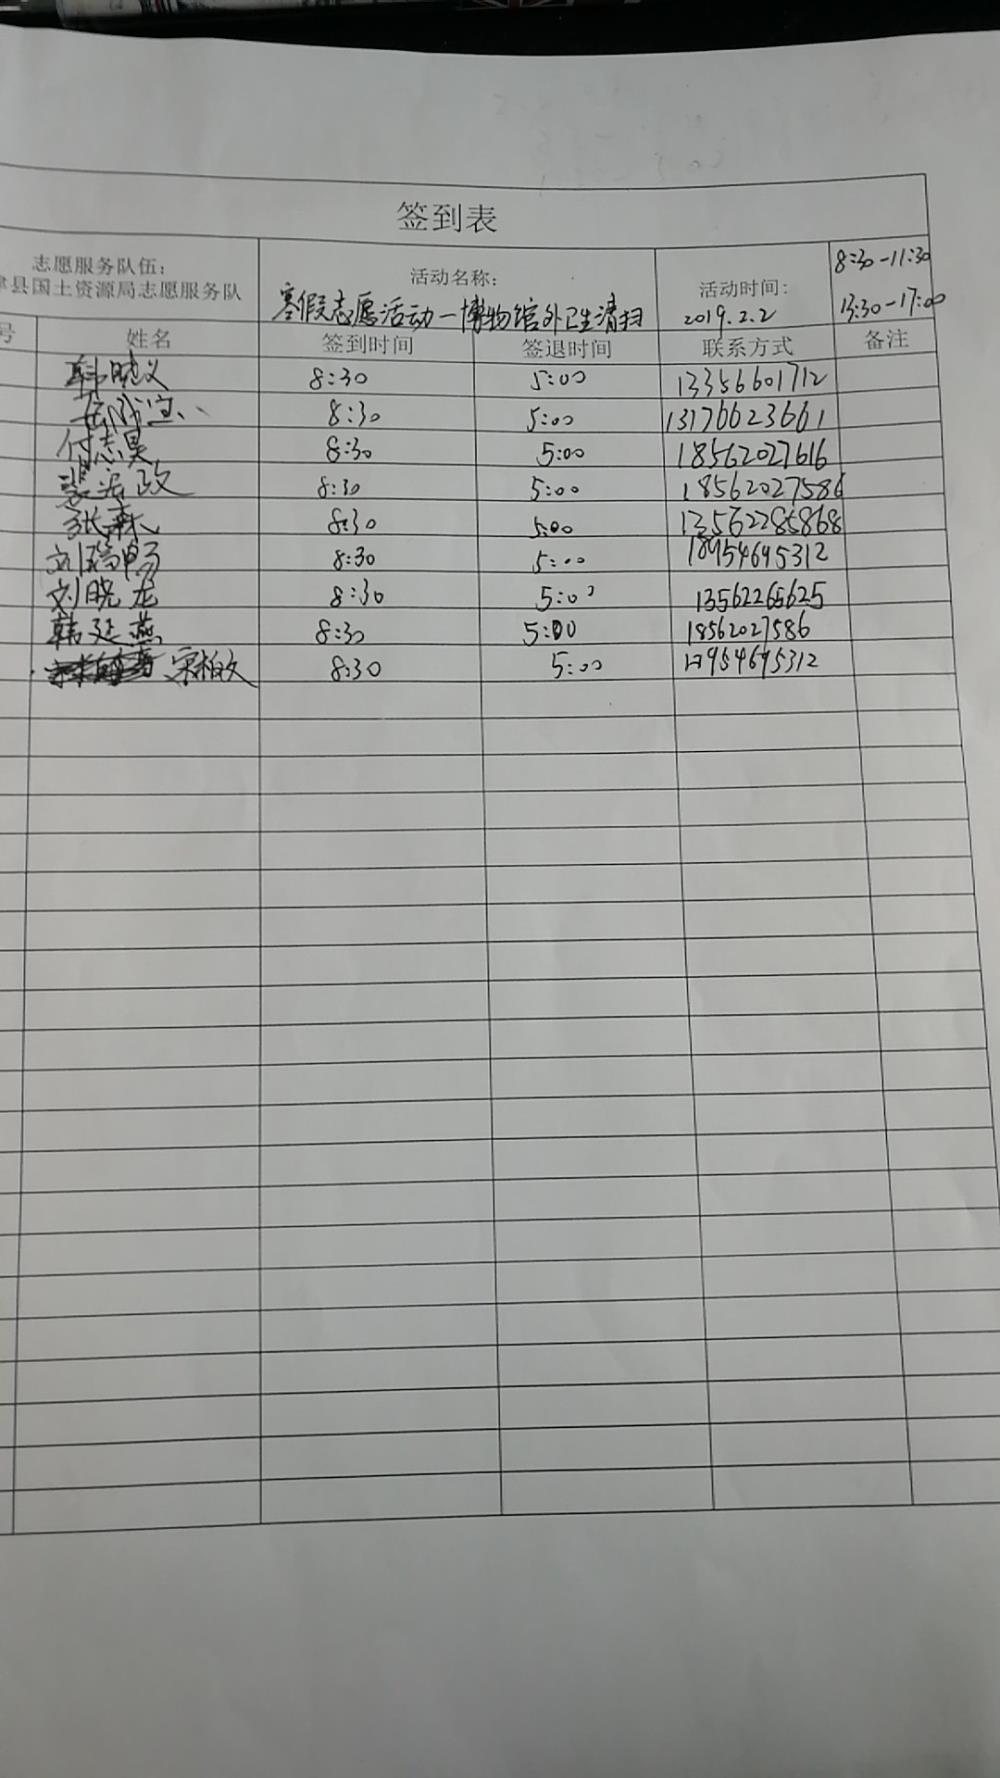 签到表
志愿服务队伍: 活动名称: 8:30-11:30
津县国土资源局志愿服务队 寒假志愿活动一博物馆外卫生清扫 活动时间: 2019.2.2 13:30-17:00
号 姓名 签到时间 签退时间 联系方式 备注
韩晓义 8:30 5:00 13356601712
8:30 5:00 13176623661
付志昊 8:30 5:00 18562027616
裴 政 8:30 5:00 18562027586
张森 8:30 5:00 13562285868
刘 8:30 5:00 18954695312
刘晓龙 8:30 5:00 13562265625
韩廷燕 8:30 5:00 18562027586
宋柏文 8:30 5:00 18954695312